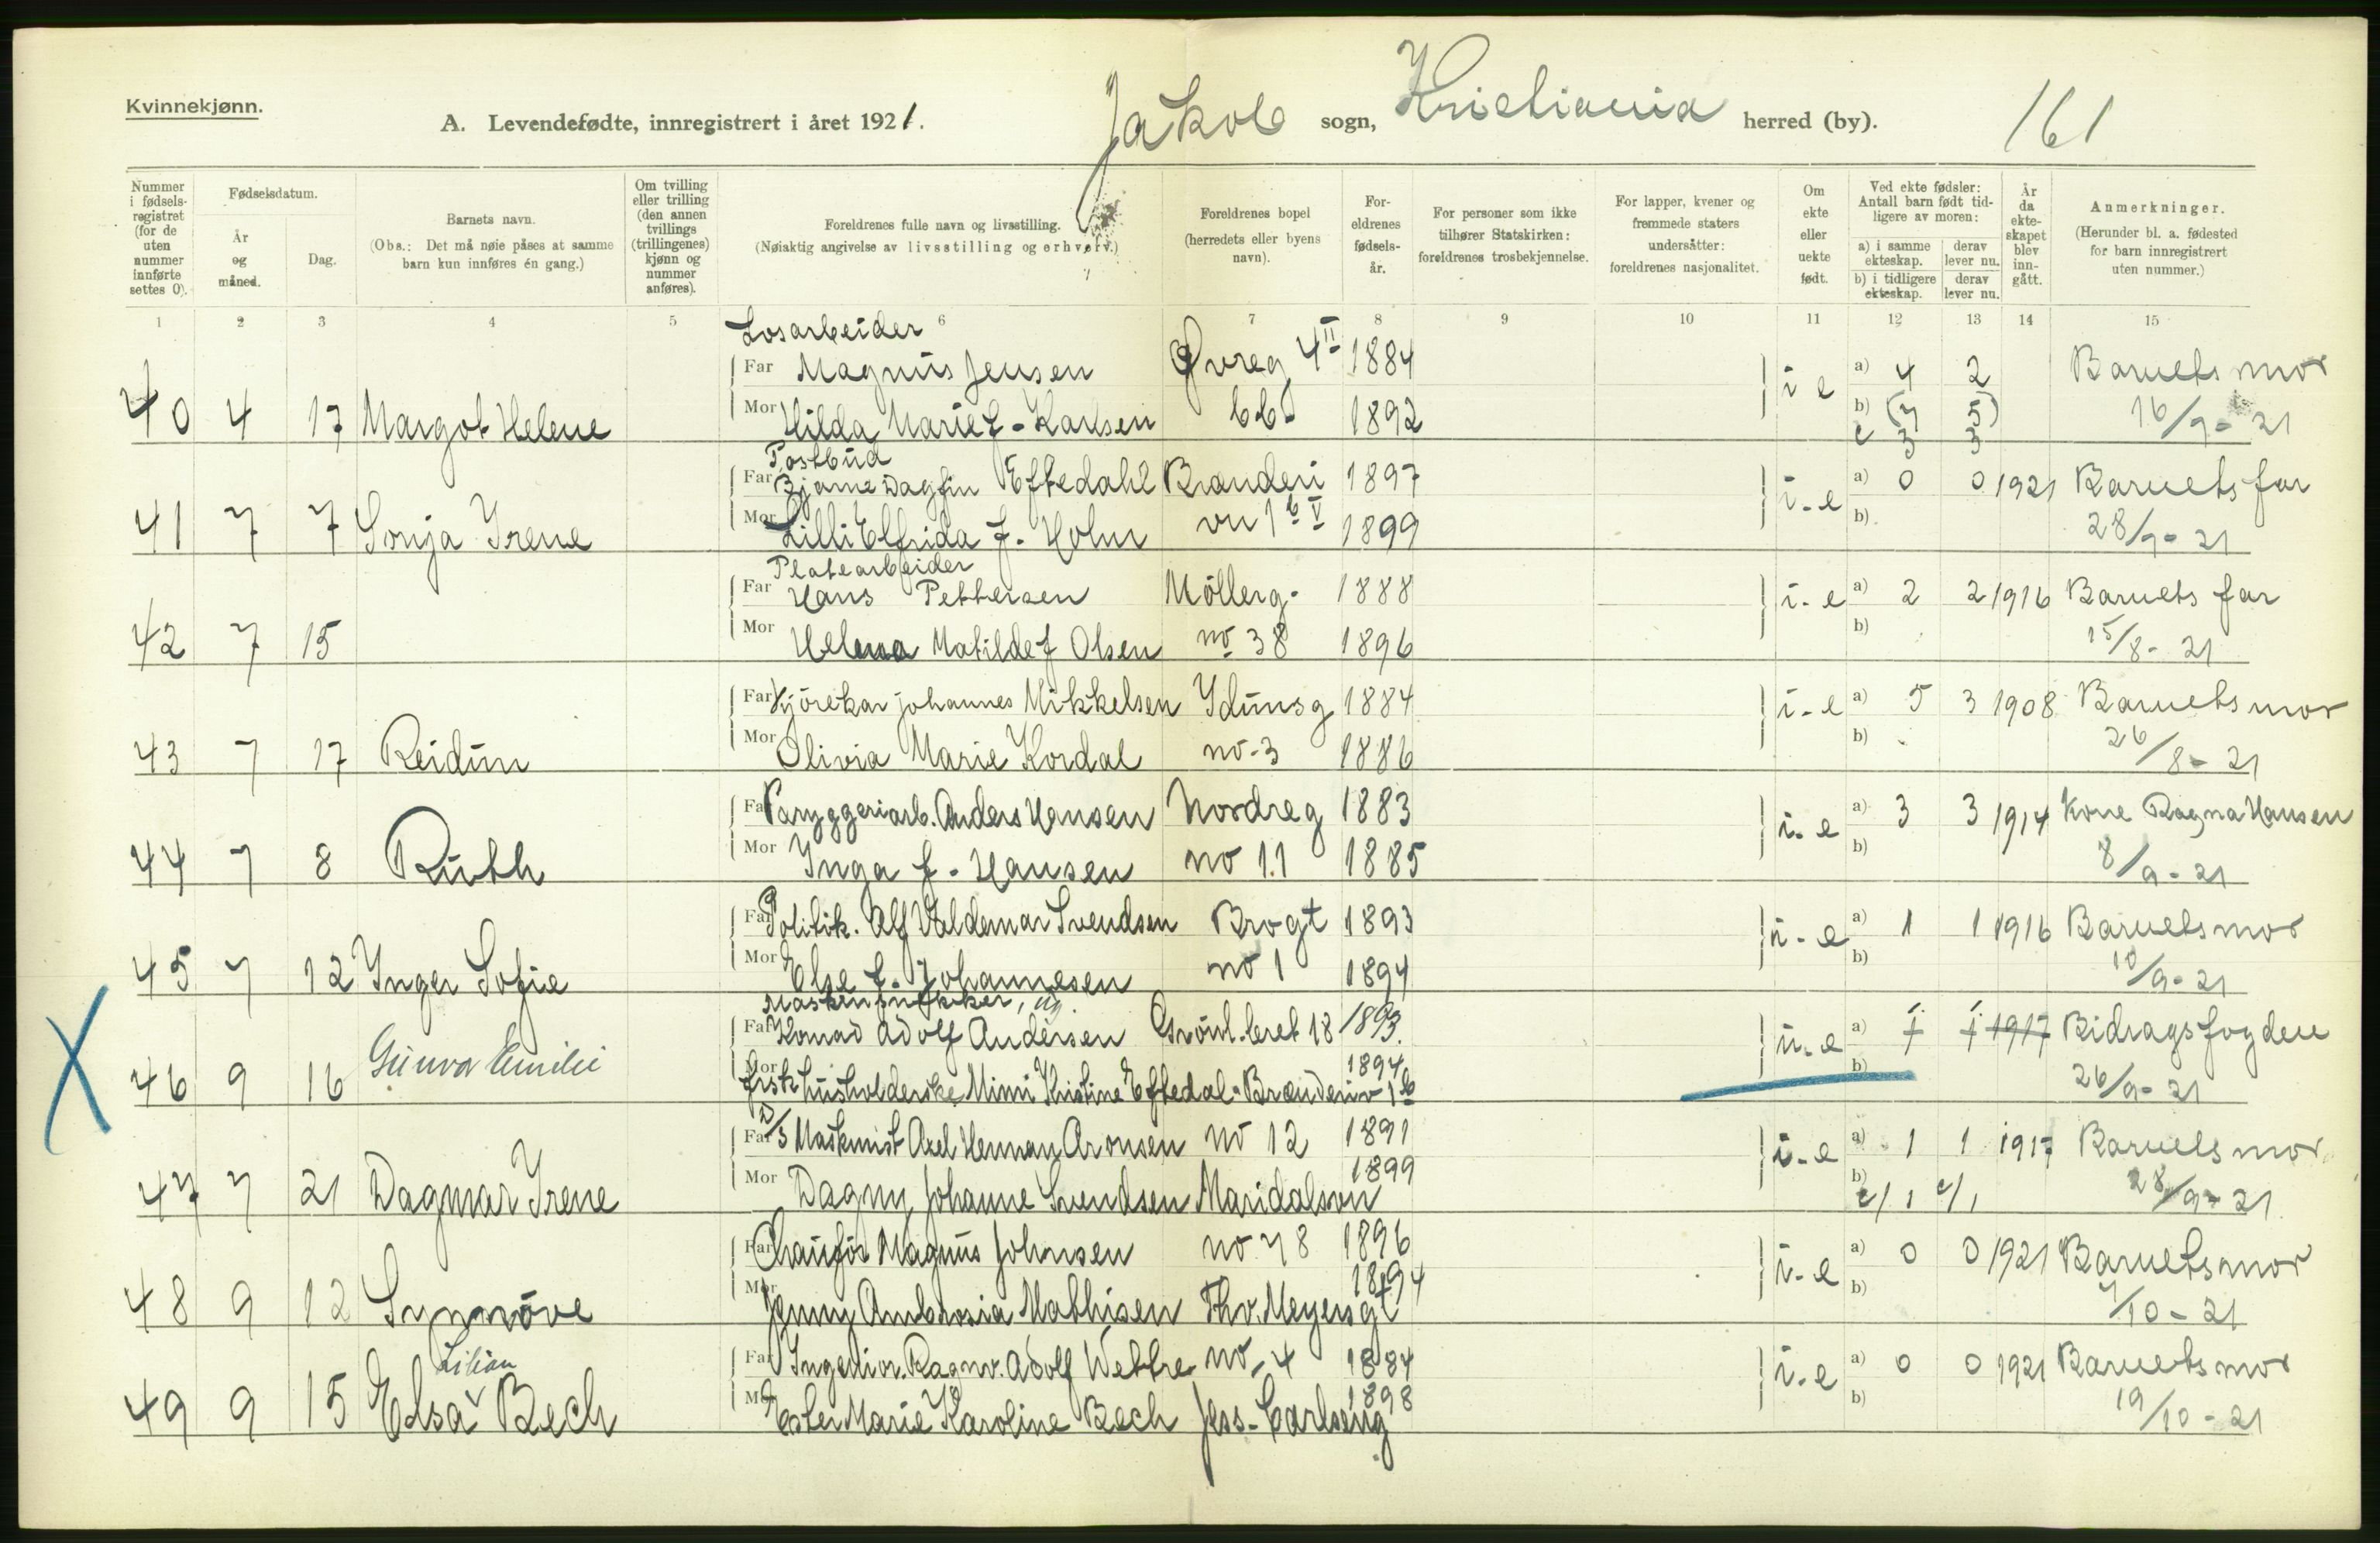 Kvinnekjønn.
A. Levendefødte, innregistrert i året 1921. Jakob sogn, Kristiania herred (by). 161
Nummer i fødselsregistret (for de uten nummer innførte settes 0).
Fødselsdatum.
År og måned.
Dag.
Barnets navn.
(Obs.: Det må nøie påses at samme barn kun innføres én gang.)
Om tvilling eller trilling (den annen tvillings (trillingenes) kjønn og nummer anføres).
Foreldrenes fulle navn og livsstilling.
(Nøiaktig angivelse av livsstilling og erhverv.)
Foreldrenes bopel (herredets eller byens navn).
Foreldrenes fødselsår.
For personer som ikke tilhører Statskirken: foreldrenes trosbekjennelse.
For lapper, kvener og fremmede staters undersåtter: foreldrenes nasjonalitet.
Om ekte eller uekte født.
Ved ekte fødsler: Antall barn født tidligere av moren:
a) i samme ekteskap. derav lever nu.
b) i tidligere ekteskap. derav lever nu.
År da ekteskapet blev inngått.
Anmerkninger.
(Herunder bl. a. fødested for barn innregistrert uten nummer.)
1 2 3 4 5 6 7 8 9 10 11 12 13 14 15
Losarbeider
Far Magnus Jensen Øvreg 4 II 1884 i e a) 4 2 Barnets mor
40 4 17 Margot Helene Mor Hilda Marie f. Karlsen 1892 b) (7 5) 16/9-21
c 3 3
Postbud
Far Bjarne Dagfin Eftedahl Branderi 1897 i-e a) 0 0 1921 Barnets far
41 7 7 Sonja Irene Mor Lilli Elfrida f. Holm vn 1 b V 1899 b) 28/9-21
Platearbeider
Far Hans Pettersen Möllerg. 1888 i-e a) 2 2 1916 Barnets far
42 7 15 Mor Helena Matilde f Olsen no 38 1896 b) 15/8-21
Far Kjörekar Johannes Mikkelsen Idunsg 1884 i-e a) 5 3 1908 Barnets mor
43 7 17 Reidun Mor Olivia Marie Kordal no-3 1886 b) 26/8-21
Far Anders Hansen Nordreg 1883 i-e a) 3 3 1914 Kone Ragna Hansen
44 7 8 Ruth Mor Inga f. Hansen no 11 1885 b) 8/9-21
Far Politik. Alf Valdemar Svendsen Brogt 1893 i-e a) 1 1 1916 Barnets mor
45 7 12 Inger Sofie Mor Else f. Johannesen no 1 1894 b) 10/9-21
Far Konrad Adolf Andersen Grönl.leret 18 1893. u-e a) 1917 Bidragsfogden
46 9 16 Gunvor Emilie Mor husholderske Mimi Kristine Eftedal Branderiv 1 b 1894 b) 26/9-21
Far Maskinist Axel Herman Aronsen no 12 1891 i-e a) 1 1 1917 Barnets mor
47 7 21 Dagmar Irene Mor Dagny Johanne Svendsen Maridalsvn 1899 b) c/1 c/1 28/9-21
Far Chauför Magnus Johnsen no 78 1896 i-e a) 0 0 1921 Barnets mor
48 9 12 Synnöve Mor Jenny Ambrosia Mathisen Thv. Meyersgt 1894 b) 7/10-21
Lilian
Far Ingeniør. Ragnv. Adolf Wettre no-4 1884 i-e a) 0 0 1921 Barnets mor
49 9 15 Elsa Bech Mor Ester Marie Karoline Bech Jess-Carlseng 1898 b) 19/10-21